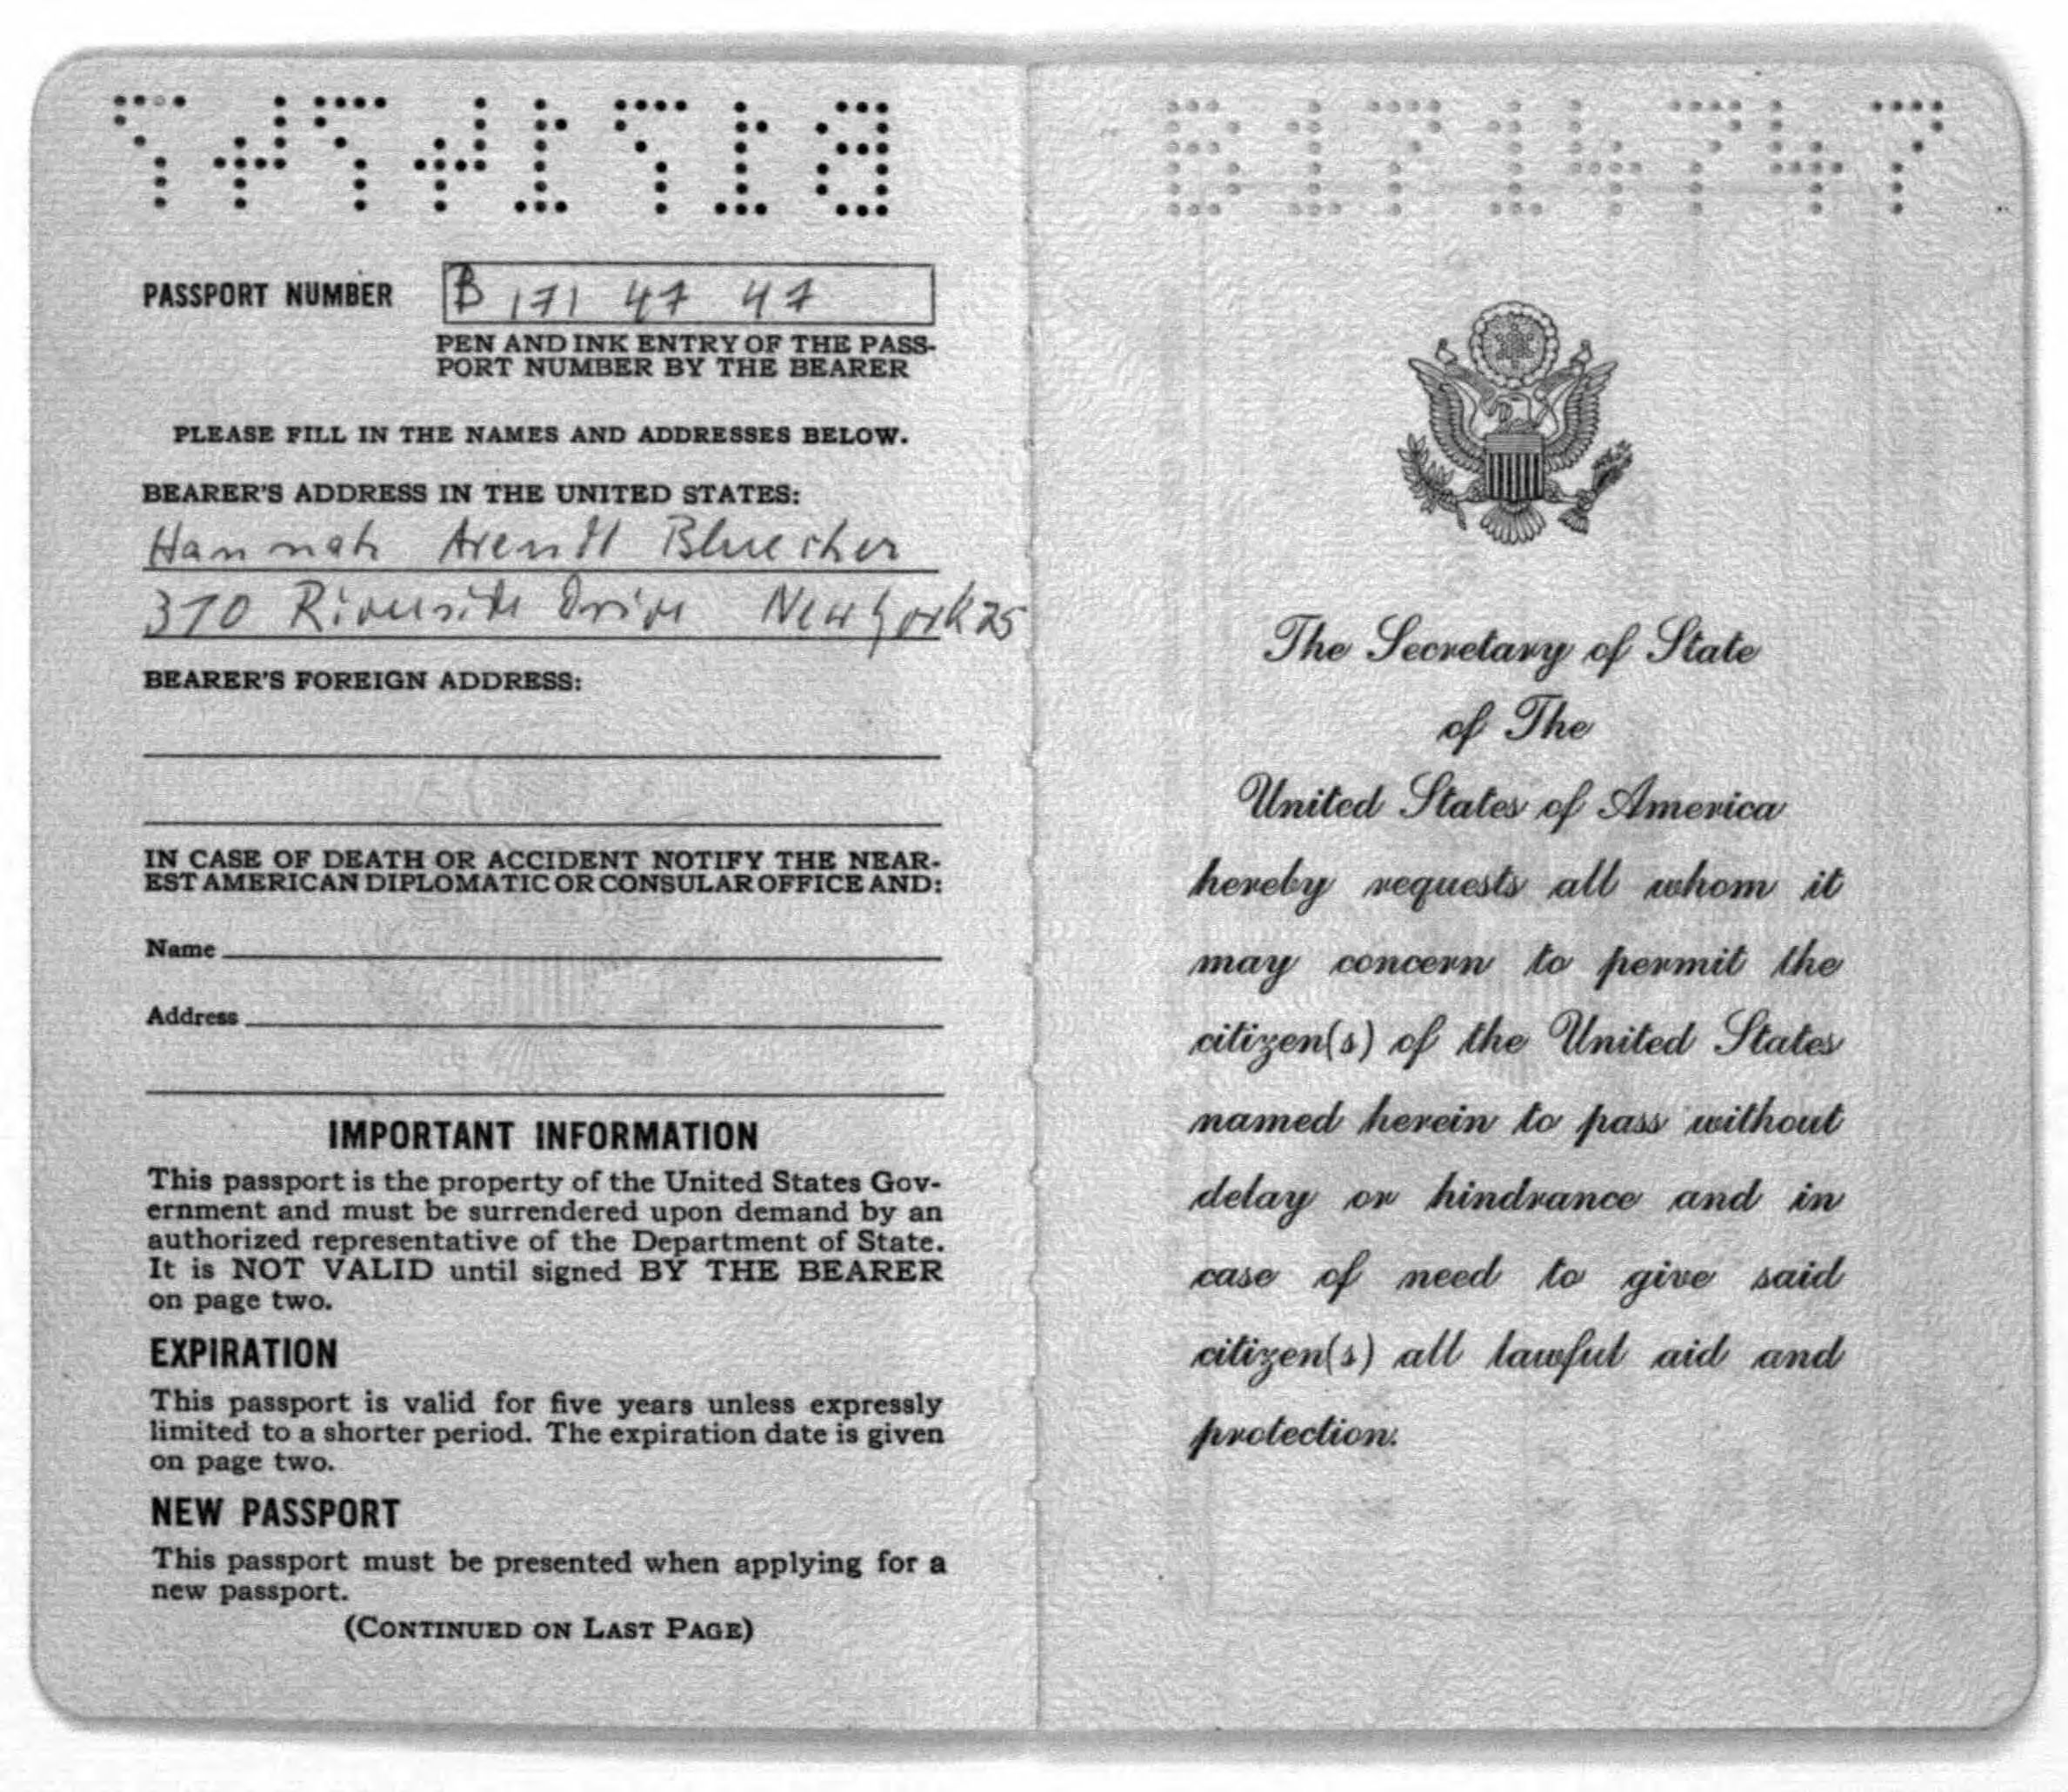 B1714747
PASSPORT NUMBER B 171 47 47
PEN AND INK ENTRY OF THE PASS-
PORT NUMBER BY THE BEARER
PLEASE FILL IN THE NAMES AND ADDRESSES BELOW.
BEARER'S ADDRESS IN THE UNITED STATES:
Hannah Arendt Bluecher
370 Riverside Drive New York 25
BEARER'S FOREIGN ADDRESS:
IN CASE OF DEATH OR ACCIDENT NOTIFY THE NEAR-
EST AMERICAN DIPLOMATIC OR CONSULAR OFFICE AND:
Name
Address
IMPORTANT INFORMATION
This passport is the property of the United States Gov-
ernment and must be surrendered upon demand by an
authorized representative of the Department of State.
It is NOT VALID until signed BY THE BEARER
on page two.
EXPIRATION
This passport is valid for five years unless expressly
limited to a shorter period. The expiration date is given
on page two.
NEW PASSPORT
This passport must be presented when applying for a
new passport.
(CONTINUED ON LAST PAGE)
B1714747
The Secretary of State
of The
United States of America
hereby requests all whom it
may concern to permit the
citizen(s) of the United States
named herein to pass without
delay or hindrance and in
case of need to give said
citizen(s) all lawful aid and
protection.